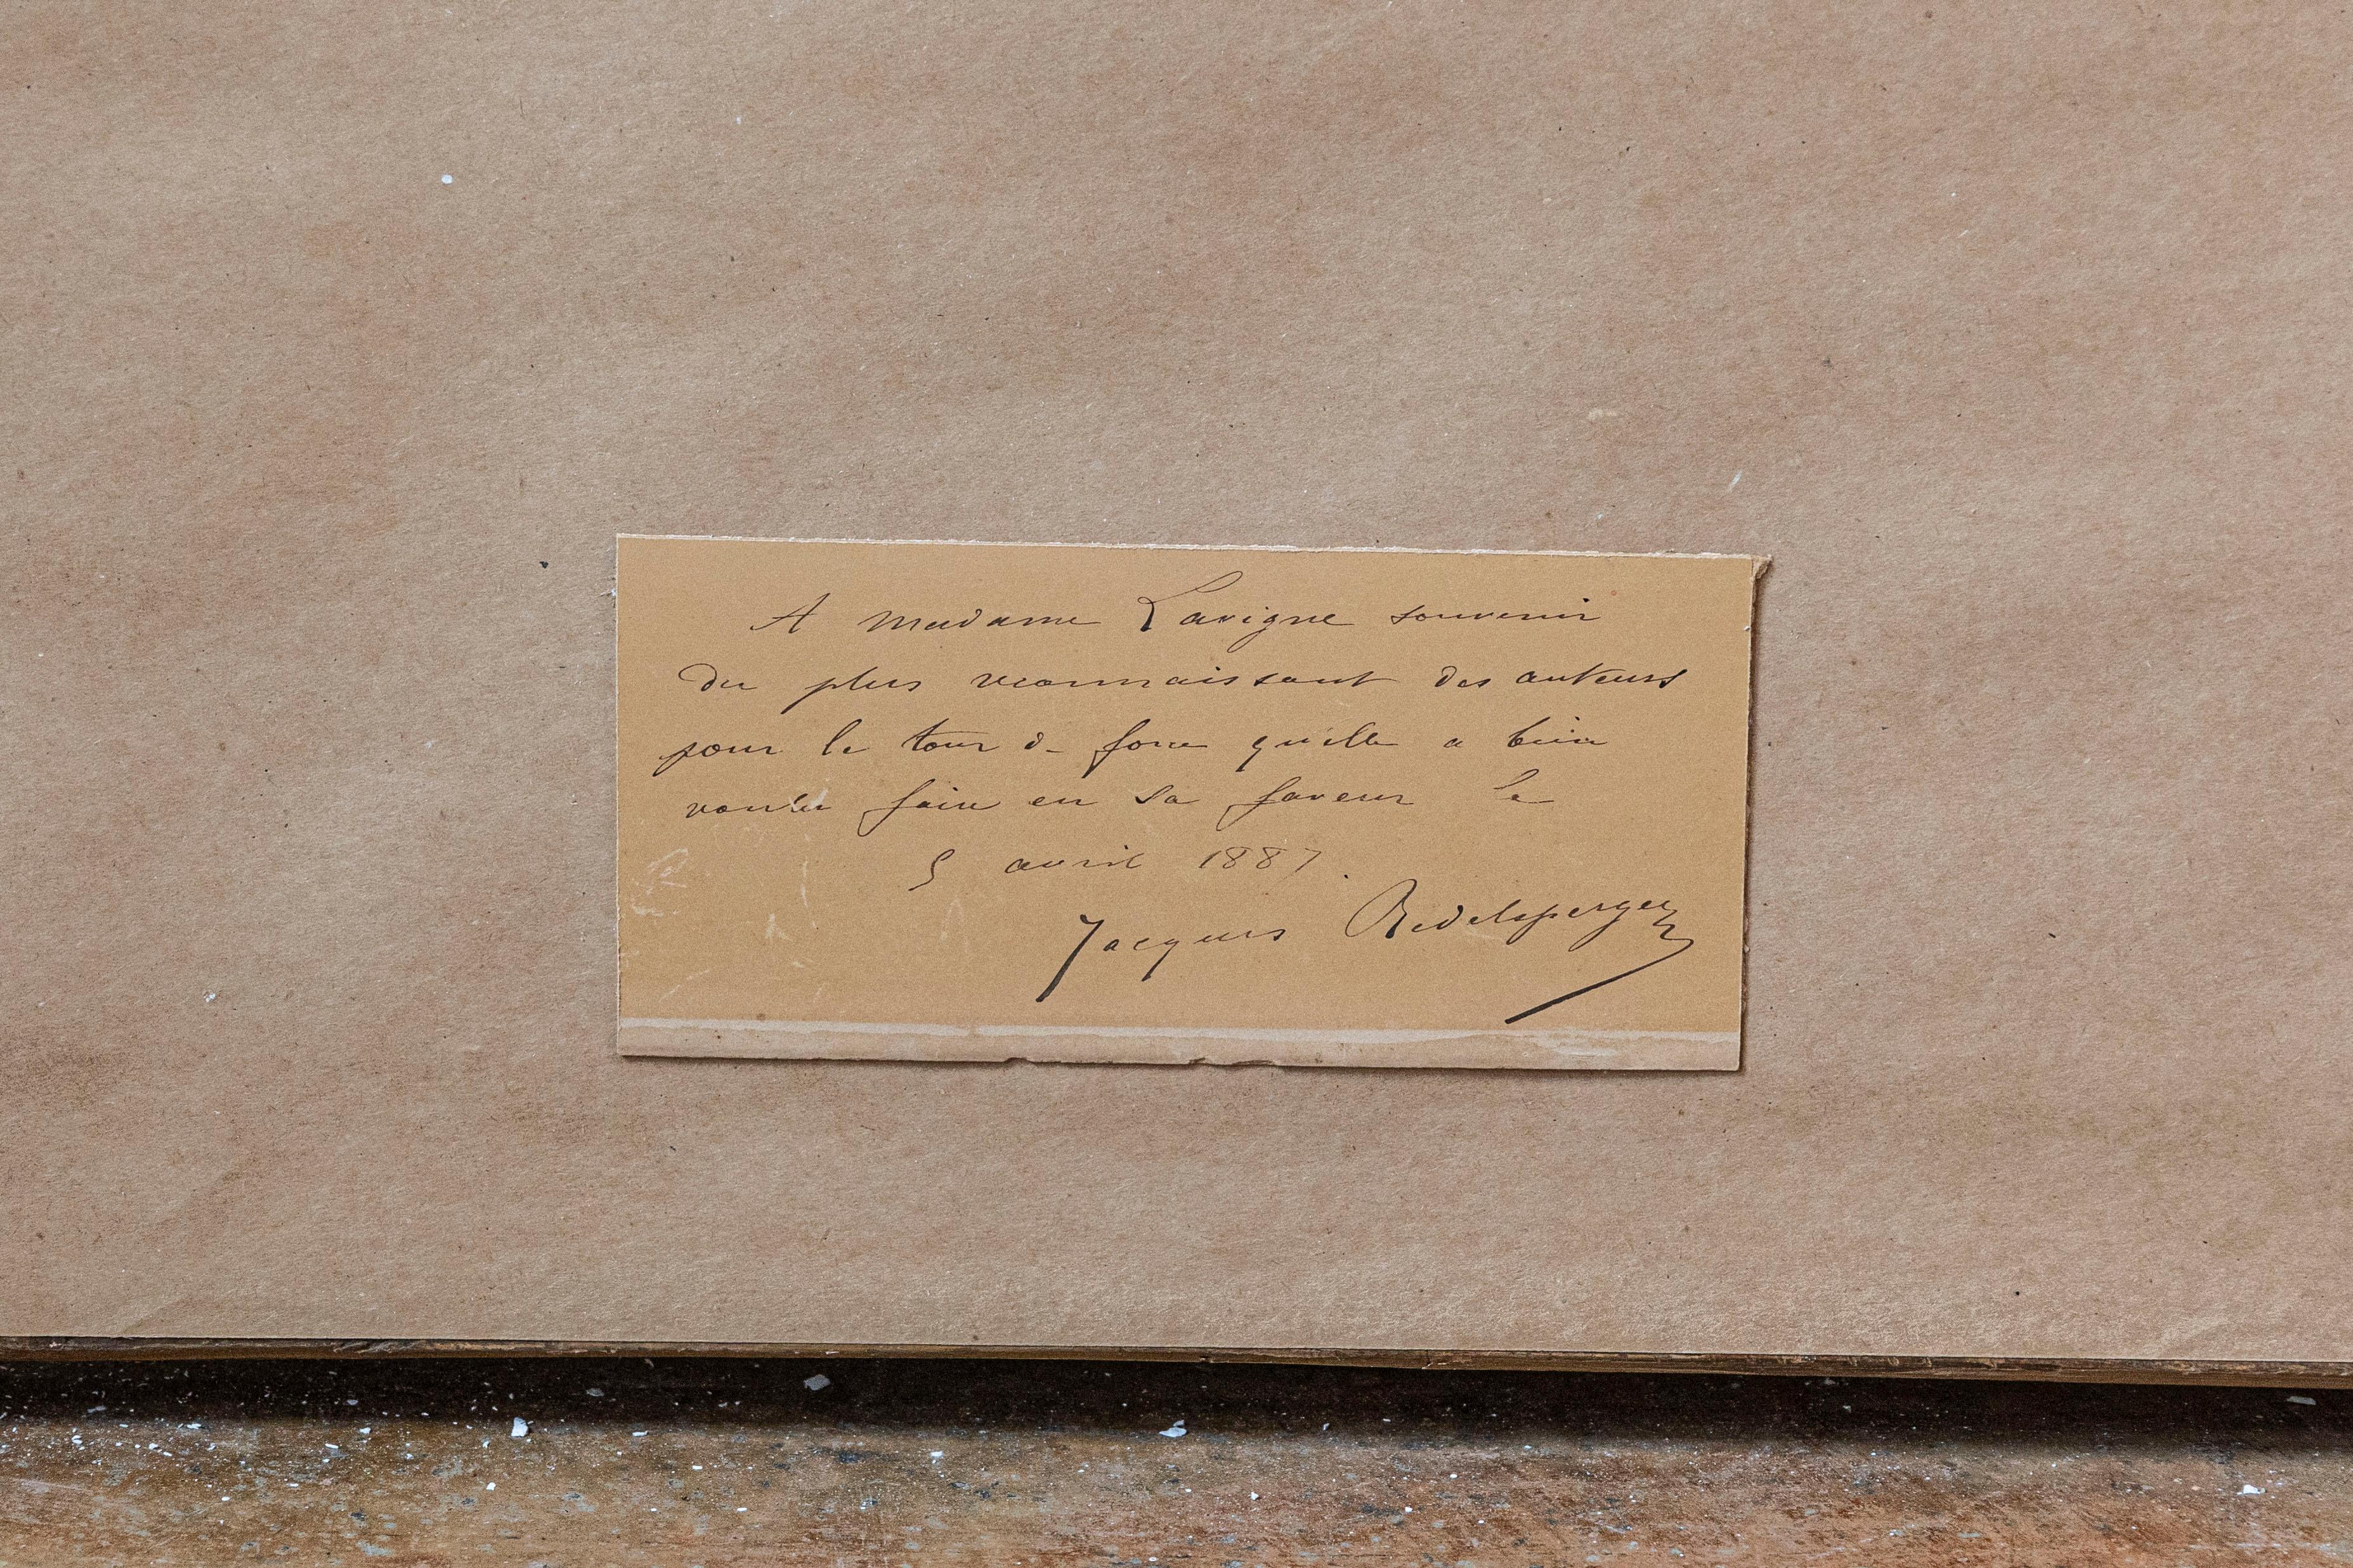 A Madame Lavigne souvenir
du plus reconnaissant des auteurs
pour le tour de force qu'elle a bien
voulu faire en sa faveur le
5 avril 1887.
Jacques Redelsperger